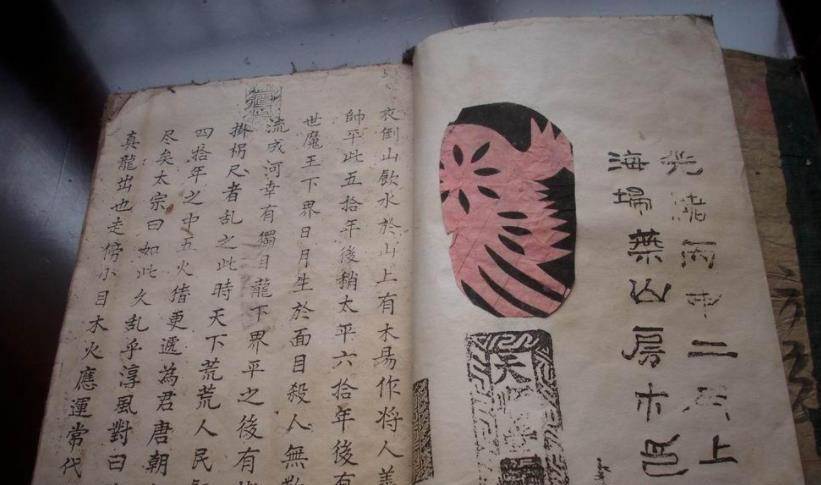 光緒丙申二上
海埽葉山房木邑
天
衣倒山飲水於山上有木易作將人善
帥平此五拾年後稍太平六拾年後有
世魔王下界日月生於面目殺人無數
流成河幸有獨目龍下界平之後有
掛枴尺者乱之此時天下荒荒人民
四拾年之中五火猪更遞為君唐朝
尽矣太宗曰如此久乱乎淳風對曰
真龍出也走傍小目木火應運常代